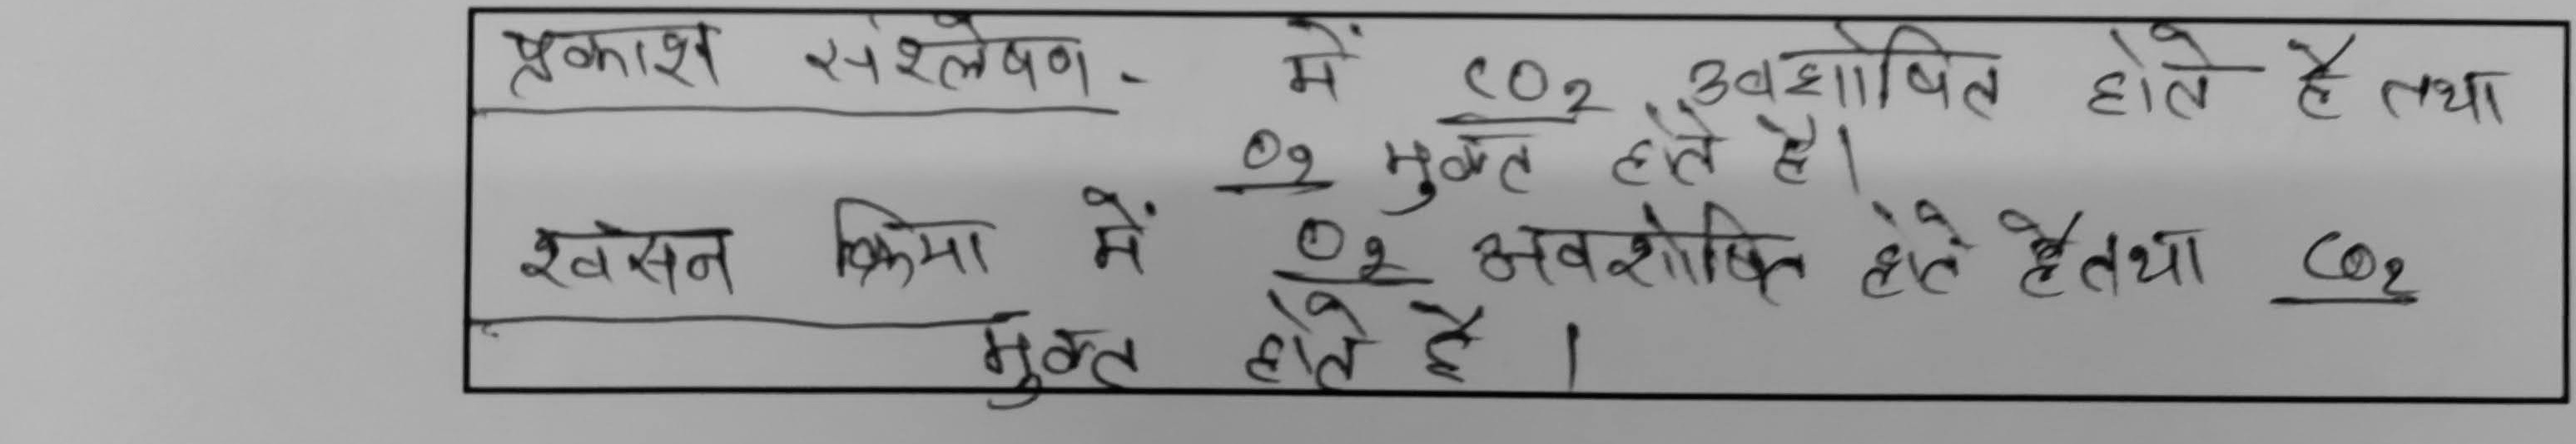 प्रकाश संश्लेषण - में CO₂ अवशोषित होते है तथा
O₂ मुक्त होते है।
श्वसन क्रिया में O₂ अवशोषित होते है तथा CO₂
मुक्त होते है ।